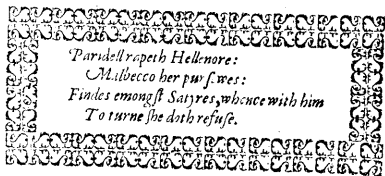 Paridell rapeth Hellenore:
Malbecco her pursewes:
Findes emongst Satyres, whence with him
To turne she doth refuse.